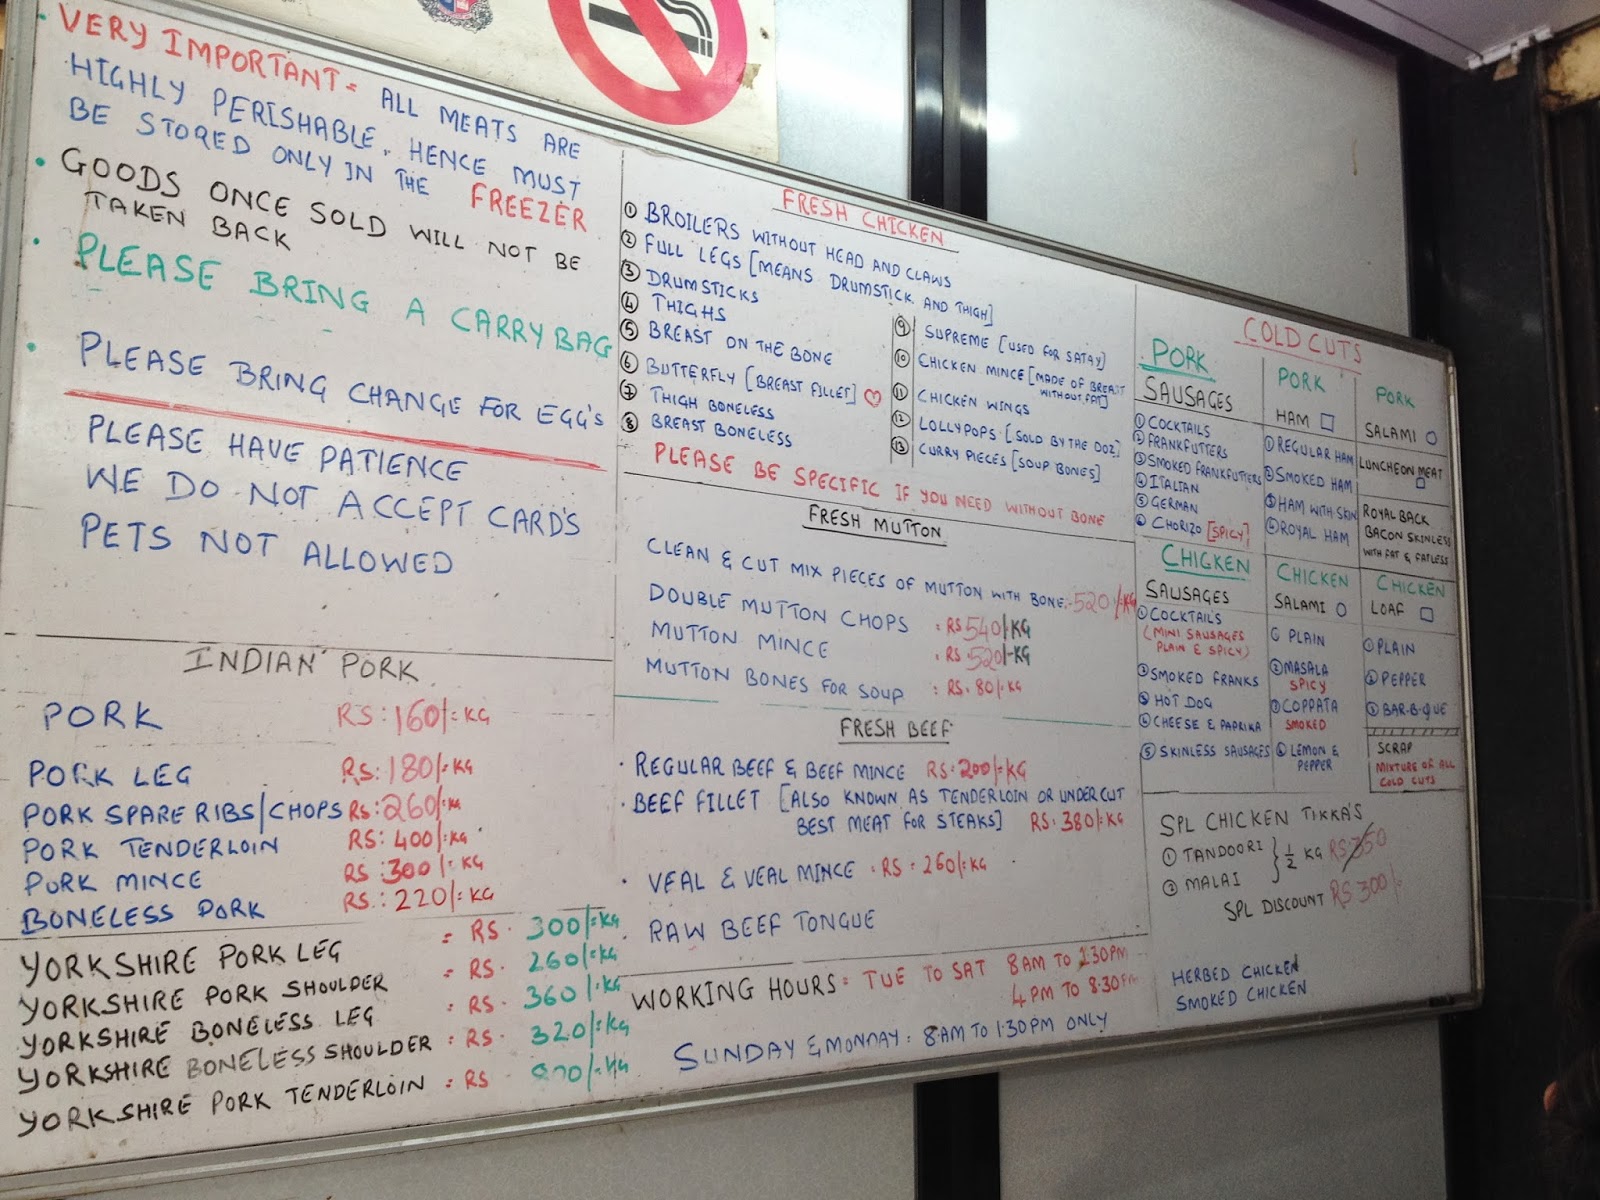 VERY IMPORTANT = ALL MEATS ARE
HIGHLY PERISHABLE. HENCE MUST
BE STORED ONLY IN THE FREEZER
• GOODS ONCE SOLD WILL NOT BE
TAKEN BACK
• PLEASE BRING A CARRY BAG
• PLEASE BRING CHANGE FOR EGG'S
PLEASE HAVE PATIENCE
WE DO NOT ACCEPT CARD'S
PETS NOT ALLOWED
INDIAN PORK
PORK RS: 160/= KG
PORK LEG RS: 180/= KG
PORK SPARE RIBS/CHOPS RS: 260/= KG
PORK TENDERLOIN RS: 400/= KG
PORK MINCE RS: 300/= KG
BONELESS PORK RS: 220/= KG
YORKSHIRE PORK LEG = RS. 300/= KG
YORKSHIRE PORK SHOULDER = RS. 260/= KG
YORKSHIRE BONELESS LEG = RS. 360/= KG
YORKSHIRE BONELESS SHOULDER = RS. 320/= KG
YORKSHIRE PORK TENDERLOIN = RS /= KG
FRESH CHICKEN
① BROILERS WITHOUT HEAD AND CLAWS
② FULL LEGS [MEANS DRUMSTICK AND THIGH]
③ DRUMSTICKS
④ THIGHS
⑤ BREAST ON THE BONE
⑥ BUTTERFLY [BREAST FILLET] ♡
⑦ THIGH BONELESS
⑧ BREAST BONELESS
⑨ SUPREME [USED FOR SATAY]
⑩ CHICKEN MINCE [MADE OF BREAST
WITHOUT FAT]
⑪ CHICKEN WINGS
⑫ LOLLYPOPS [SOLD BY THE DOZ]
⑬ CURRY PIECES [SOUP BONES]
PLEASE BE SPECIFIC IF YOU NEED WITHOUT BONE
FRESH MUTTON
CLEAN & CUT MIX PIECES OF MUTTON WITH BONE. 520/- KG
DOUBLE MUTTON CHOPS : RS 540/- KG
MUTTON MINCE . RS. 520/- KG
MUTTON BONES FOR SOUP : RS. 80/- KG
FRESH BEEF
• REGULAR BEEF & BEEF MINCE RS: 200/= KG
• BEEF FILLET [ALSO KNOWN AS TENDERLOIN OR UNDERCUT
BEST MEAT FOR STEAKS] RS. 380/= KG
• VEAL & VEAL MINCE . RS : 260/= KG
• RAW BEEF TONGUE
WORKING HOURS = TUE TO SAT 8 AM TO 1:30 PM
4 PM TO 8:30 PM
SUNDAY & MONDAY : 8 AM TO 1:30 PM ONLY
COLD CUTS
PORK
SAUSAGES
① COCKTAILS
② FRANKFUTTERS
③ SMOKED FRANKFUTTERS
④ ITALIAN
⑤ GERMAN
⑥ CHORIZO [SPICY]
PORK
HAM □
① REGULAR HAM
② SMOKED HAM
③ HAM WITH SKIN
④ ROYAL HAM
PORK
SALAMI ○
LUNCHEON MEAT □
ROYAL BACK
BACON SKINLESS
WITH FAT & FATLESS
CHICKEN
SAUSAGES
① COCKTAILS
(MINI SAUSAGES
PLAIN & SPICY)
② SMOKED FRANKS
③ HOT DOG
④ CHEESE & PAPRIKA
⑤ SKINLESS SAUSAGES
CHICKEN
SALAMI ○
① PLAIN
② MASALA
SPICY
③ COPPATA
SMOKED
④ LEMON &
PEPPER
CHICKEN
LOAF □
① PLAIN
② PEPPER
③ BAR-B-QUE
SCRAP
MIXTURE OF ALL
COLD CUTS
SPL CHICKEN TIKKA'S
① TANDOORI
② MALAI } ½ KG RS: 350
SPL DISCOUNT RS 300/-
HERBED CHICKEN
SMOKED CHICKEN